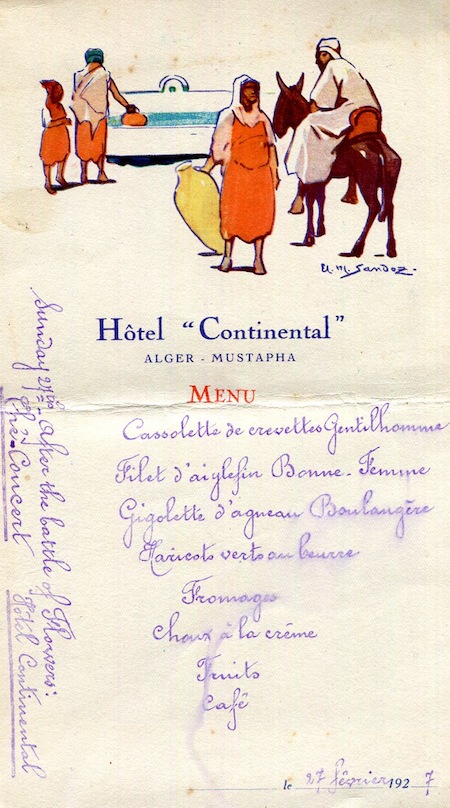 E. M. Sandoz-
Hôtel "Continental"
ALGER - MUSTAPHA
MENU
Cassolette de crevettes Gentilhomme
Filet d'aiglefin Bonne-Femme
Gigolette d'agneau Boulangère
Haricots verts au beurre
Fromages
Choux à la crème
Fruits
Café
le 27 février 1927
Sunday 27th. After the battle of Flowers:
"Thé-Concert Hôtel Continental